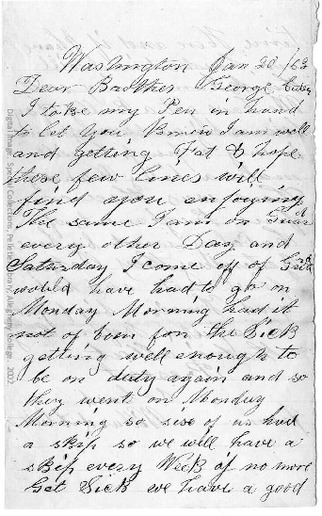 Washington Jan 20 /63
Dear Brother George
I take my Pen in hand
to let you know I am well
and getting Fat & hope
these few lines will
find you enjoying
the same I am on Guard
every other Day and
Saturday I come off of Grd
would have had to go on
Monday Morning had it
not of been for the Sick
getting well enough to
be on duty again and so
they went on Monday
Morning so six of us had
a skip so we will have a
skip every Week if no more
Get Sick we have a good
Digital Image, Special Collections, Pelletier Library, Allegheny College, 2022